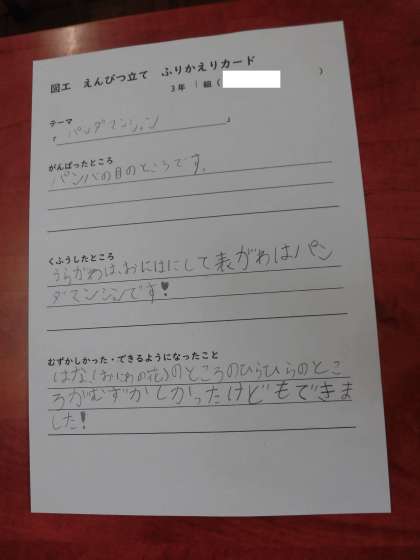 図工 えんぴつ立て ふりかえりカード
3年 1組( )
テーマ
「パンダマンション」
がんばったところ
パンパの目のところです。
くふうしたところ
うらがわは、おにはにして表がわはパン
ダマンションです!
むずかしかった・できるようになったこと
はな(おにわの花)のところのひらひらのとこ
ろがむずかしかったけどもできま
した!